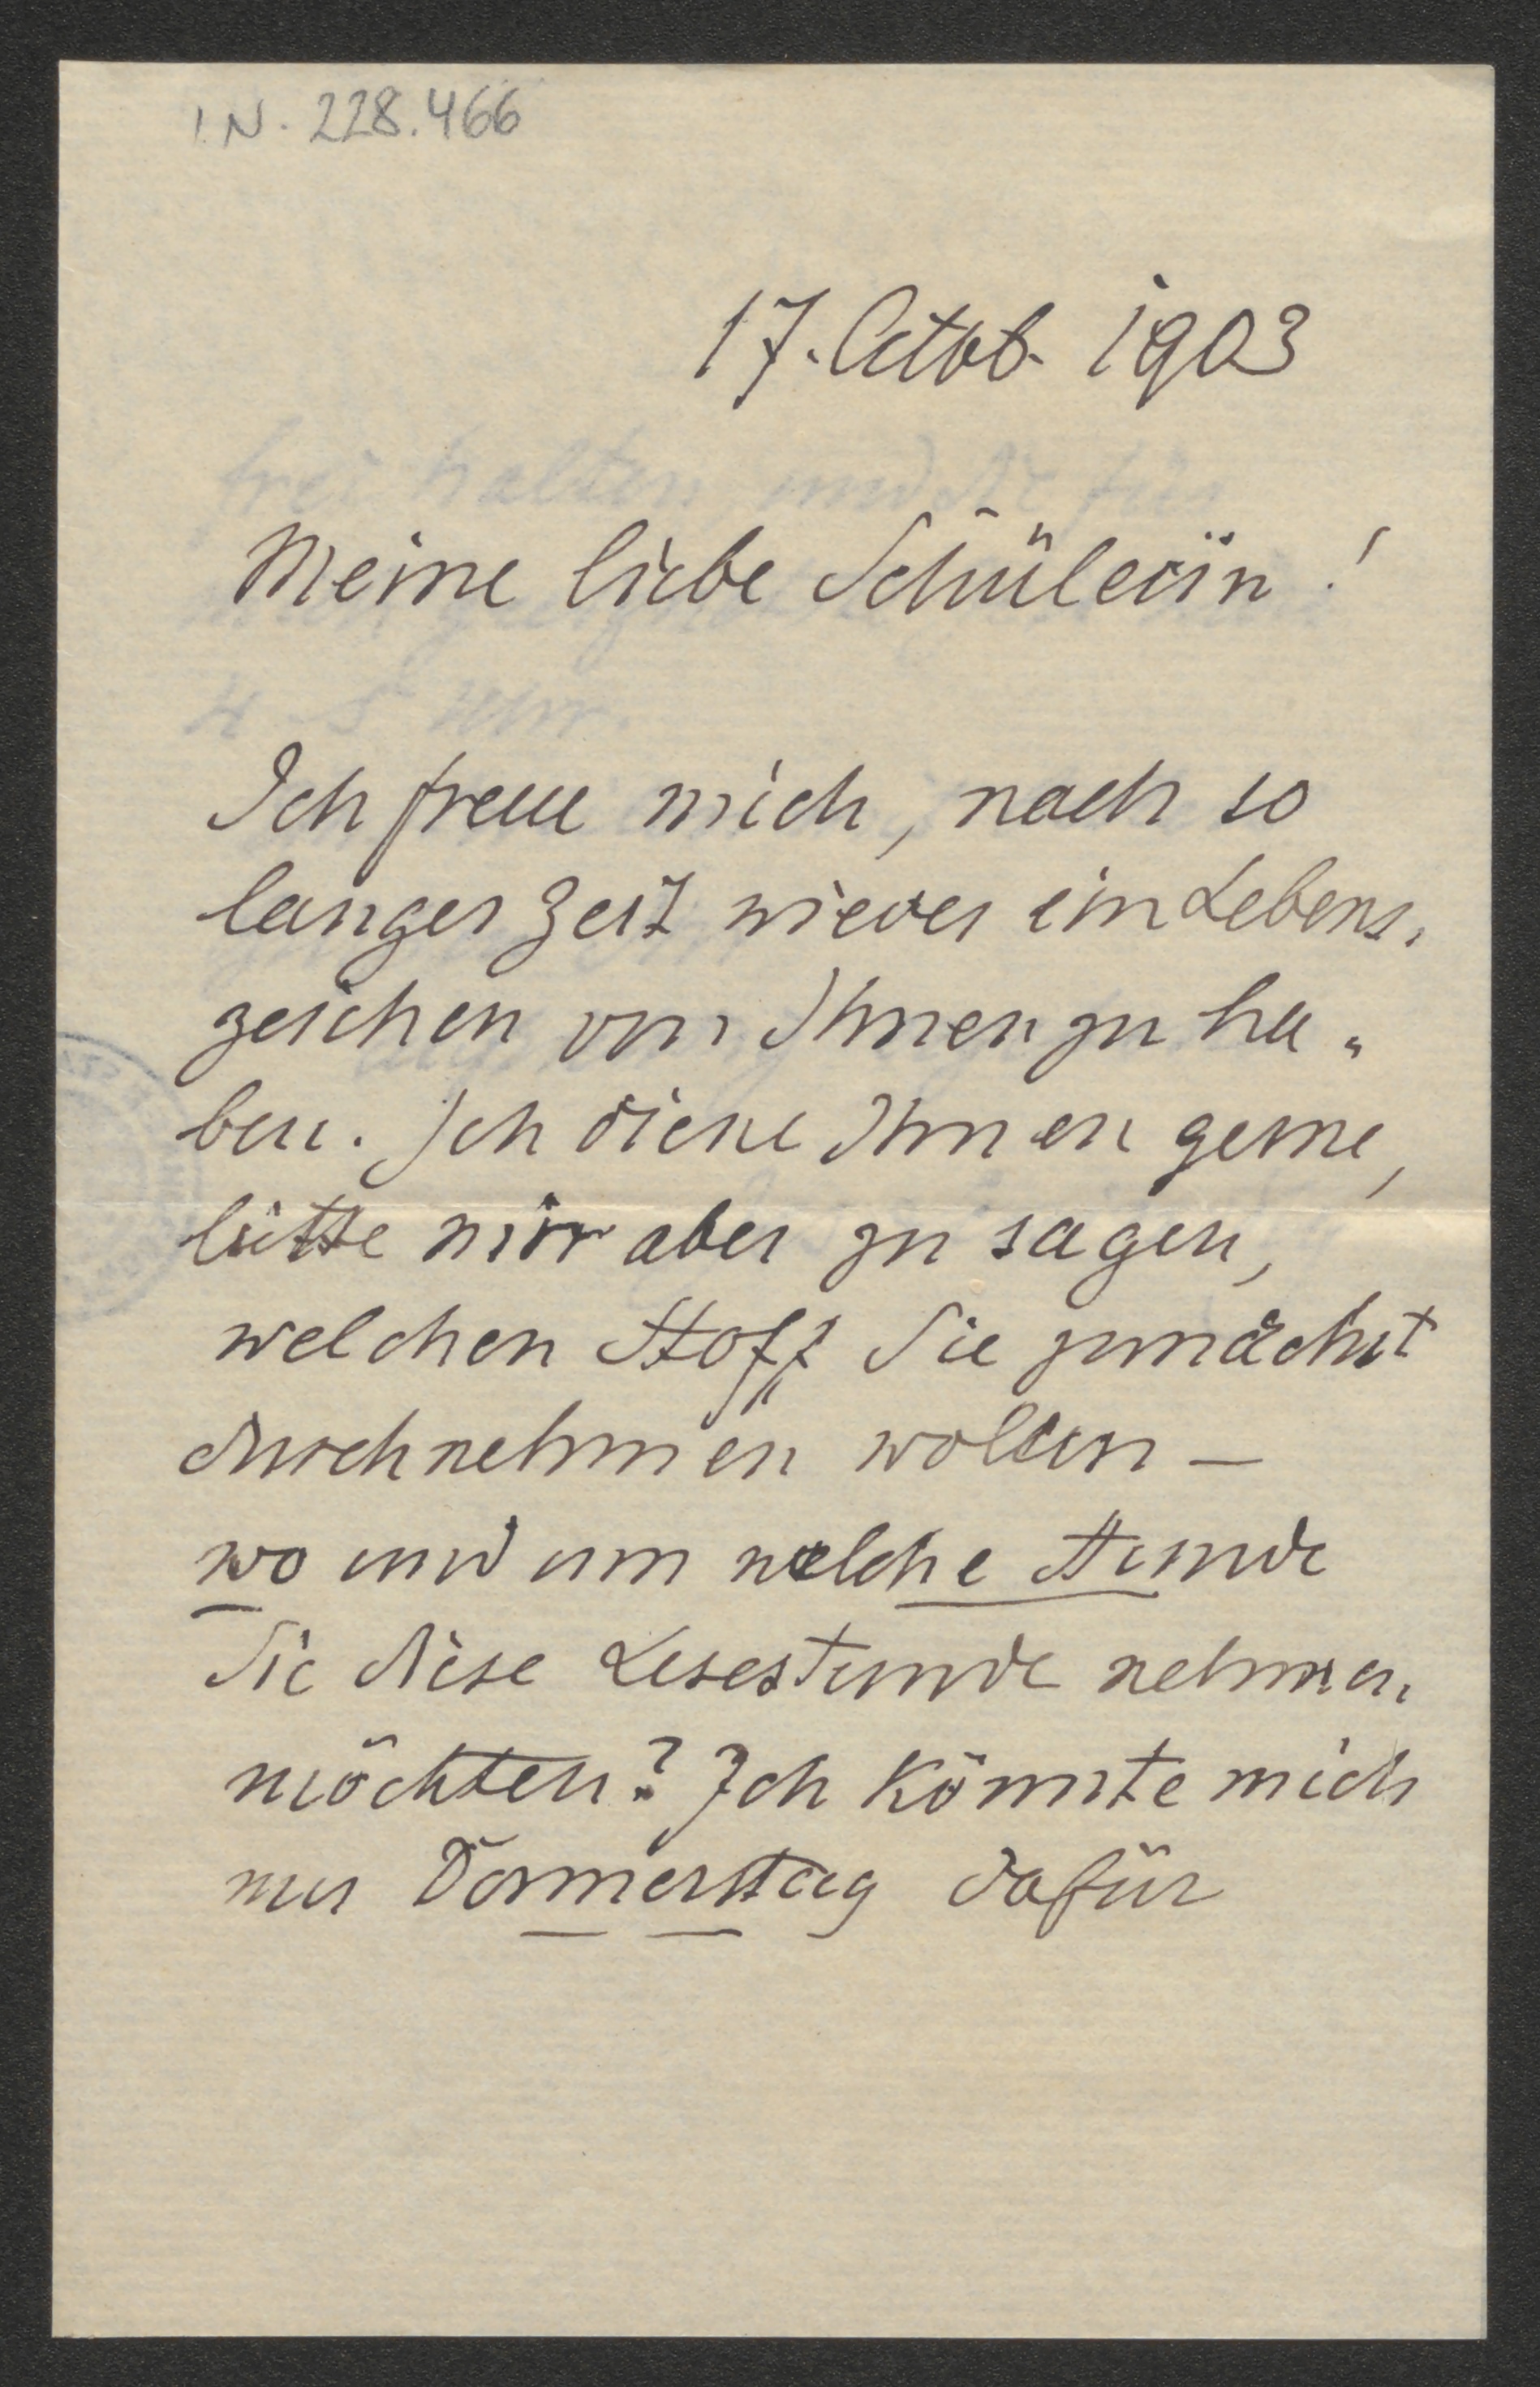 I.N. 228.466
17. Octob. 1903
Meine liebe Schülerin!
Ich freue mich, nach so
langer Zeit wieder ein Lebens-
zeichen von Ihnen zu ha-
ben. Ich diene Ihnen gerne,
bitte mir aber zu sagen,
welchen Stoff Sie zunächst
durchnehmen wollen –
wo und um welche Stunde
Sie diese Lesestunde nehmen
möchten? Ich könnte mich
nur Donnerstag dafür